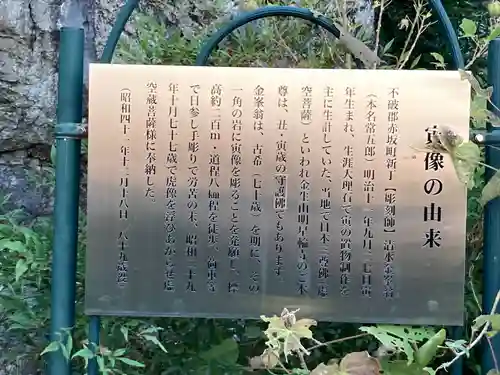 寅像の由来
不破郡赤坂町新丁【彫刻師】清水金峯翁
(本名常五郎)明治十一年九月二七日寅
年生まれ、生涯大理石で寅の置物調作を
主に生計していた。当地で日本三
空菩薩)といわれ金生山明星輪寺のご本
尊は、丑・寅歳の守護佛でもあります。
金峯翁は、古希(七十歳)を期に、その
一角の岩に寅像を彫ることを発願し、標
高約二百m・道程八 程を徒歩
で日参し手彫りで労苦の末、昭和二十九
年十月七十七歳で虎像を浮びあがらせ虚
空蔵菩薩様に奉納した。
(昭和四十二年十二月十八日 八十九歳没)